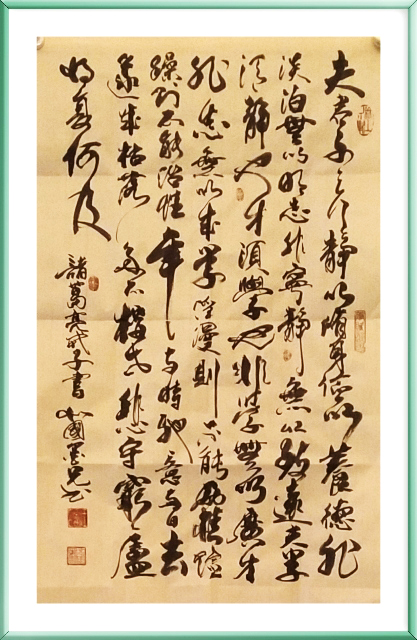 夫君子之行靜以修身儉以養德非
淡泊無以明志非寧靜無以致遠夫學
須靜也才須學也非學無以廣才
非志無以成學淫漫則不能勵精險
躁則不能治性年與時馳意與日去
遂成枯落多不接世悲守窮廬
將復何及
諸葛亮誡子書